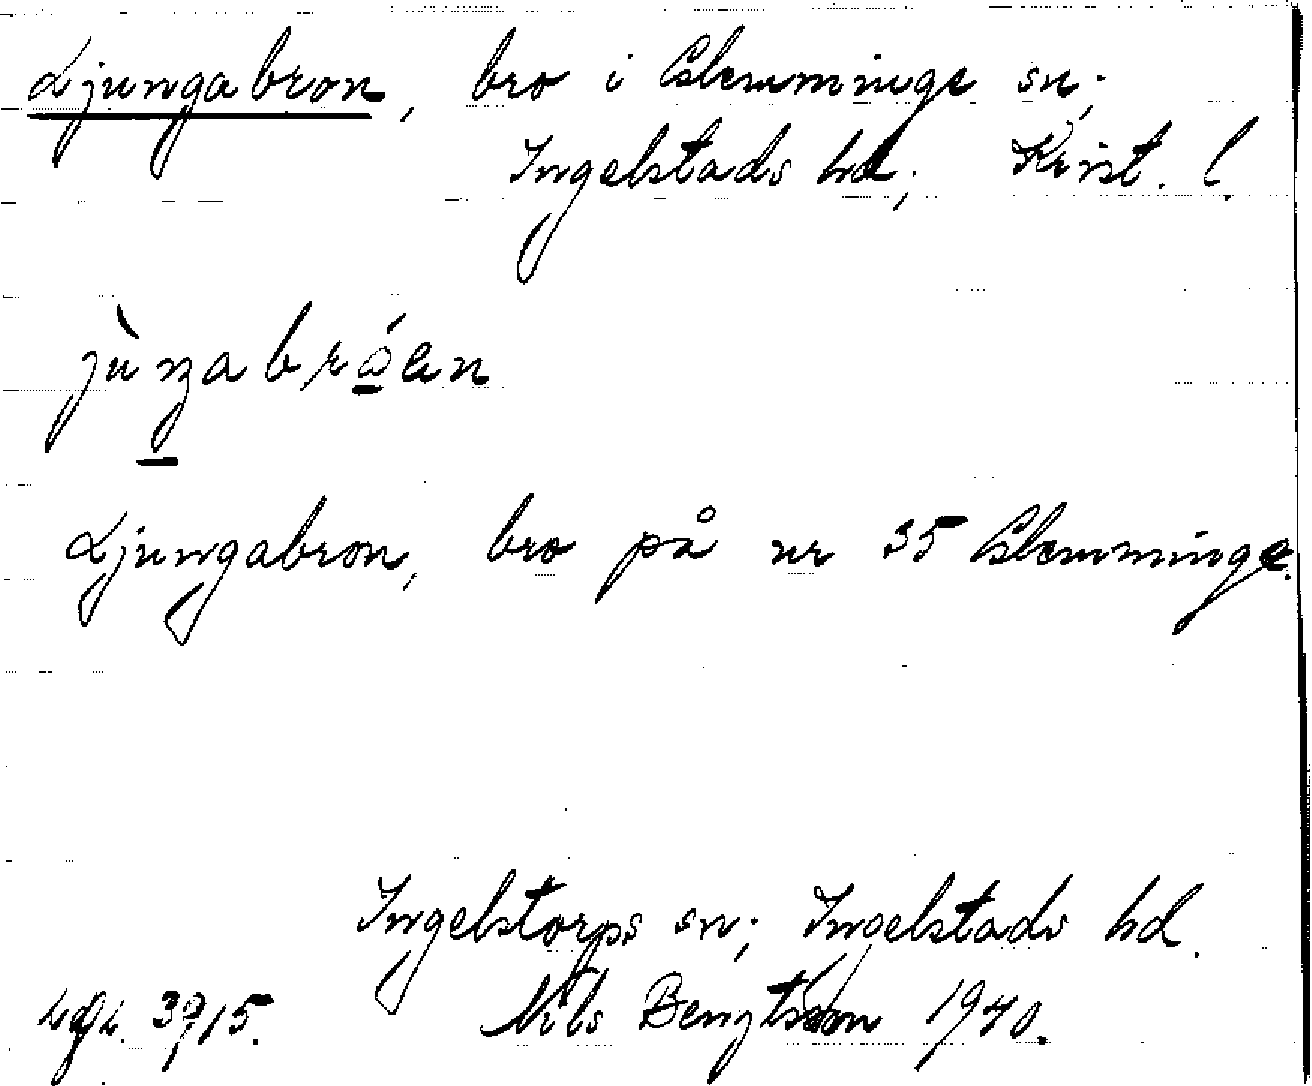 Ljungabron, bro i Glemminge sn;
Ingelstads hd; Krist. l.
Ljungabron, bro på nr 35 Glemminge.
Ingelstorps sn; Ingelstads hd.
3915. Nils Bengtsson 1940.